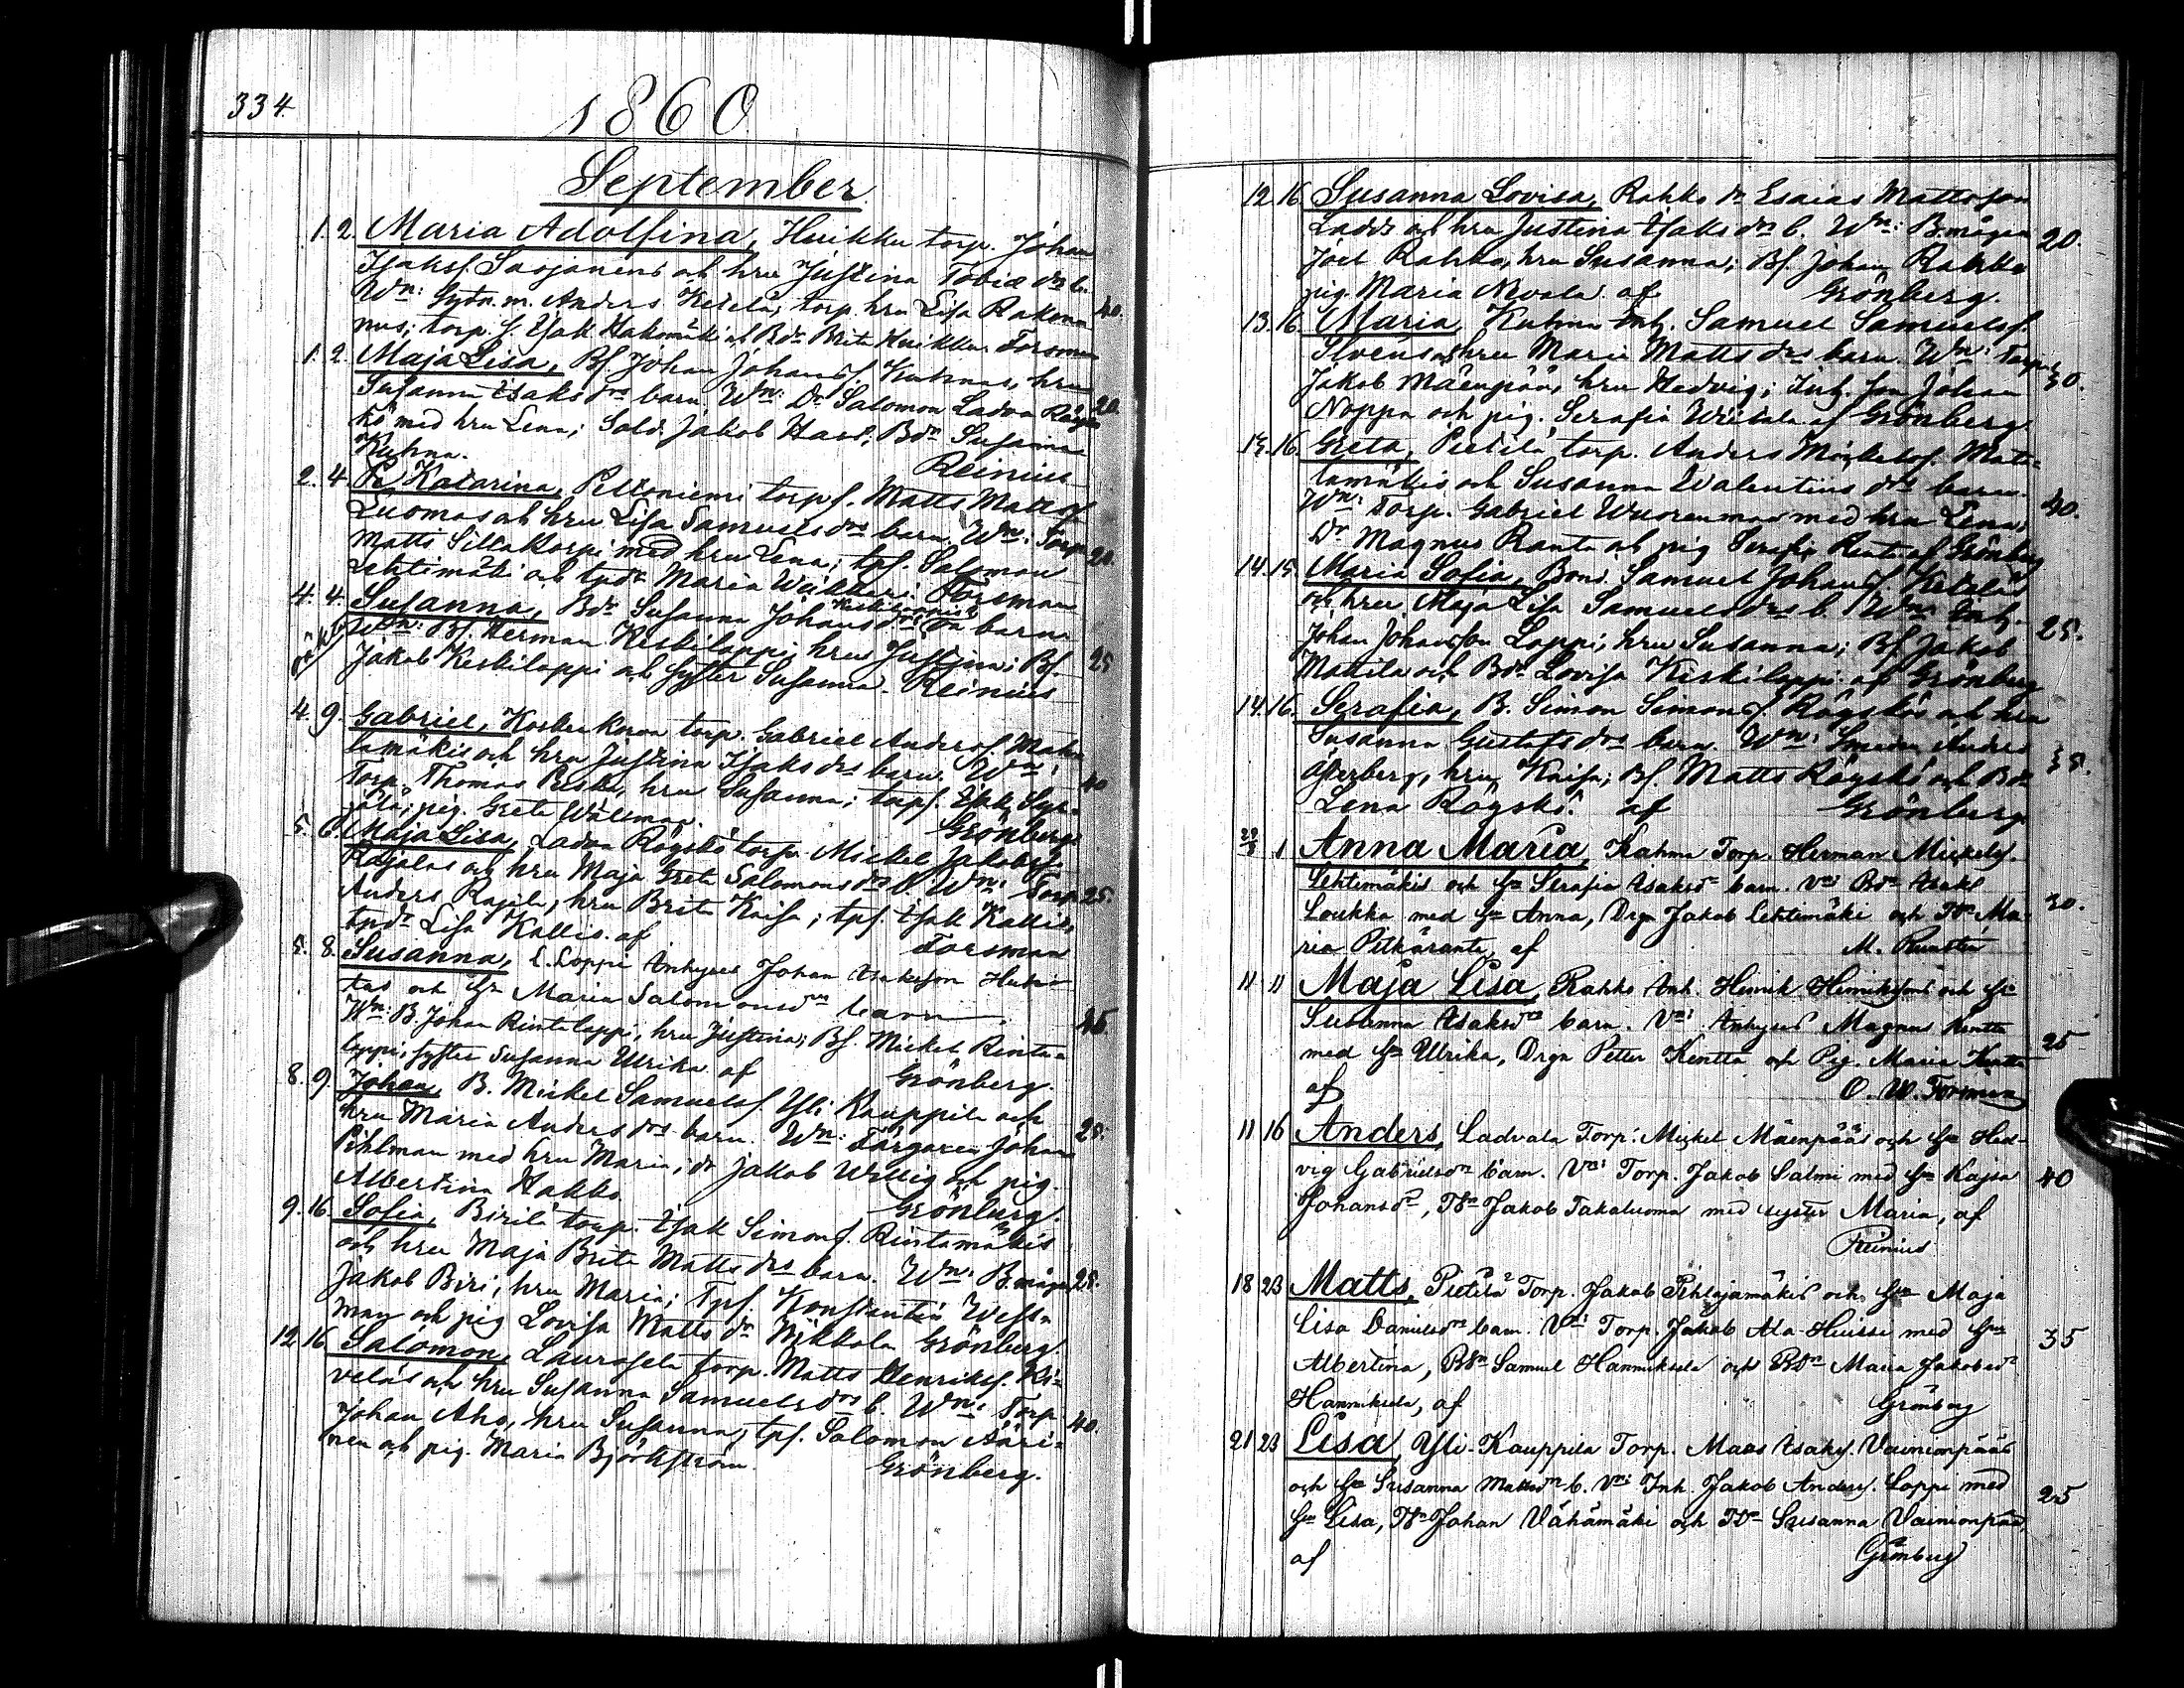 334.
1860
September
1. 2. Maria Adolfina, Huikku torp. Johan
Isakss. Sarjanens och hru Justina Tobiæ drs b.
Wn: Sytn.m. Anders Ketela, torp. hru Lisa Rakenn 40.
nus; torp. s. Isak Hakomäki och Bdr Brita Huikku. Forsman
1. 2. Maja Lisa, Bf. Johan Johanss. Kuhnas, hru
Susanna Isaks drs barn. Wn: Dr Salomon Ladva Rögs 20.
kö med hru Lena; Sold. Jakob Hast, Bdr Susanna
Kuhna. Reinius
2. 4. Katarina, Peltoniemi torps. Matts Mattss.
Luomas och hru Lisa Samuels drs barn. Wn: Torp.
Matts Sillakorpi med hru Lena; tps. Salomon 20.
Lehtimäki och tpdr Maria Wäkkeri. Forsman
4. 4. Susanna, Bdr Susanna Johans drs barn
Wn: Bf. Herman Keskiloppi, hru Justina; Bf. 25
Jakob Keskiloppi och syster Susanna. Reinius
4. 9. Gabriel, torp. Gabriel Anderss. Mata
lamäkis och hru Justina Isaks drs barn. Wn:
Torp. Thomas hru Susanna; torps. Isak 40
pig. Greta Wällman. Grönberg.
5. 6. Maja Lisa, Ladva Rögskö torp. Mickel Jakobss.
Rajalas och hru Maja Greta Salomons drs b. Wn: Torp. 25.
Anders Rajala, hru Brita Kaisa; tps. Isak Kallis,
tpdr Lisa Kallis. af Forsman
5. 8. Susanna, L. Loppi Inhyses Johan Isaksson Huhta
las och hr Maria Salomonsdrs barn.
Wn: B. Johan Rintaloppi, hru Justina; Bf. Mickel Rinta= 45
loppi, syster Susanna Ulrika. af Grönberg.
8. 9. Johan, B. Mickel Samuelss. Yli Kauppila och
hru Maria Anders drs barn. Wn: Färgaren Johan 25.
Pihlman med hru Maria; dr Jakob Wellig och pig.
Albertina Hakko. Grönberg.
9. 16. Sofia, Birilä torp. Isak Simonss. Rintamäkis
och hru Maja Brita Matts drs barn. Wn: B.mågen 25.
Jakob Biri, hru Maria; Tps. Konstantin Wess=
man och pig Lovisa Matts dr Nikkola Grönberg.
12. 16. Salomon, Laurosela torp. Matts Henrikss. Ki=
veläs och hru Susanna Samuels drs b. Wn: Torp.
Johan Aho, hru Susanna; tps. Salomon Ääri= 40.
nen och pig. Maria Björkström. Grönberg.
12. 16. Susanna Lovisa, Rahko dr Esaias Mattsson
Ladds och hru Justina Isaks drs b. Wn: B.mågen 20.
Joel Rahko, hru Susanna; Bf. Johan Rahko
pig. Maria Nvala. af Grönberg.
13. 16. Maria, Kuhna Inh. Samuel Samuelss.
och hru Maria Matts drs barn. Wn: Torp. 30.
Jakob Mäenpää, hru Hedvig; Inh. son Johan
Noppa och pig. Serafia Wiitala af Grönberg
14. 16. Greta, Pietilä torp. Anders Mickelss. Mata=
lamäkis och Susanna Walentins drs barn.
Wn: Torp. Gabriel Wuorenmaa med hru Lena; 40.
Dr Magnus Ranta och pig Serafia Ranta af Grönberg
14. 15. Maria Sofia, Bond. Samuel Johanss. Ketelas
och hru Maja Lisa Samuelsdrs b. Wn: Inh. 25.
Johan Johansson Loppi, hru Susanna; Bf. Jakob
Mattila och Bdr Lovisa Keskiloppi. af Grönberg
14. 16. Serafia, B. Simon Simonss. Rögskös och hru
Susanna Gustafs drs barn. Wn: Smeden Anders 35.
Österberg, hru Kaisa; Bf. Matts Rögskö och Bdr
Lena Rögskö. af Grönberg
29/8 1 Anna Maria, Kahma Torp. Herman Mickelss.
Lehtimäkis och hr Serafia Isaksdr barn. Vn: Bdn Isak
Loukko med hr Anna, Drgn Jakob Lehtimäki och Tdr Ma= 30.
ria Pitkäranta, af M. Runsten
11 11 Maja Lisa, Rahko Inh. Henrik Henrikssons och hr
Susanna Isaksdrs barn. Vn: Inhyses Magnus Kentta 25
med hr Ulrika, Drgn Petter Kentta och Pig. Maria Kentta
af O. W. Forsman
11 16 Anders, Ladvala Torp. Mickel Mäenpääs och hr Hed=
vig Gabrielsdrs barn. Vn: Torp. Jakob Salmi med hr Kajsa 40
Johansdr, Tsn Jakob Takaluoma med syster Maria, af
Reinius
18 23 Matts, Pietilä Torp. Jakob Pihlajamäkis och hr Maja
Lisa Danielsdrs barn. Vn: Torp. Jakob Ala-Huissi med hr 35
Albertina, Bsn Samuel Hannuksela och Bdr Maria Jakobsdr
Hannuksela, af Grönberg
21 23 Lisa, Yli-Kauppila Torp. Maas Isakss. Vainionpääs
och hr Susanna Mattsdrs b. Vn: Inh. Jakob Anderss. Loppi med 25
hr Lisa, Tsn Johan Vähämäki och Tdr Susanna Vainionpää,
af Grönberg